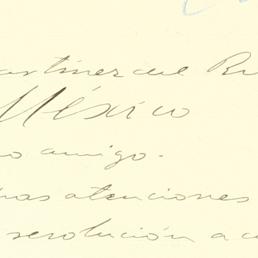 artinez del R
México
o amigo.
as atenciones
resolución a c